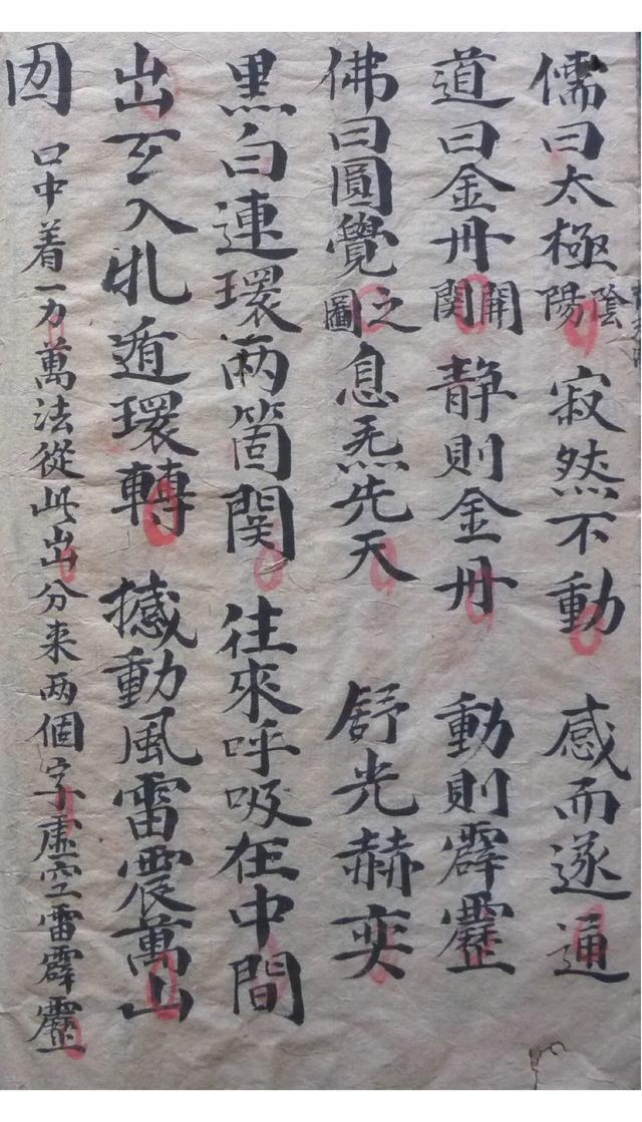 儒曰太極陰陽 寂然不動 感而遂通
道曰金丹開関 静則金丹 動則霹靂
佛曰圓覺之圖 息炁先天 舒光赫奕
黒白連環兩箇関 往來呼吸在中間
出玄入牝循環轉 撼動風雷震萬山
囦 口中着一力萬法從此出分来两個字虚空雷霹靂